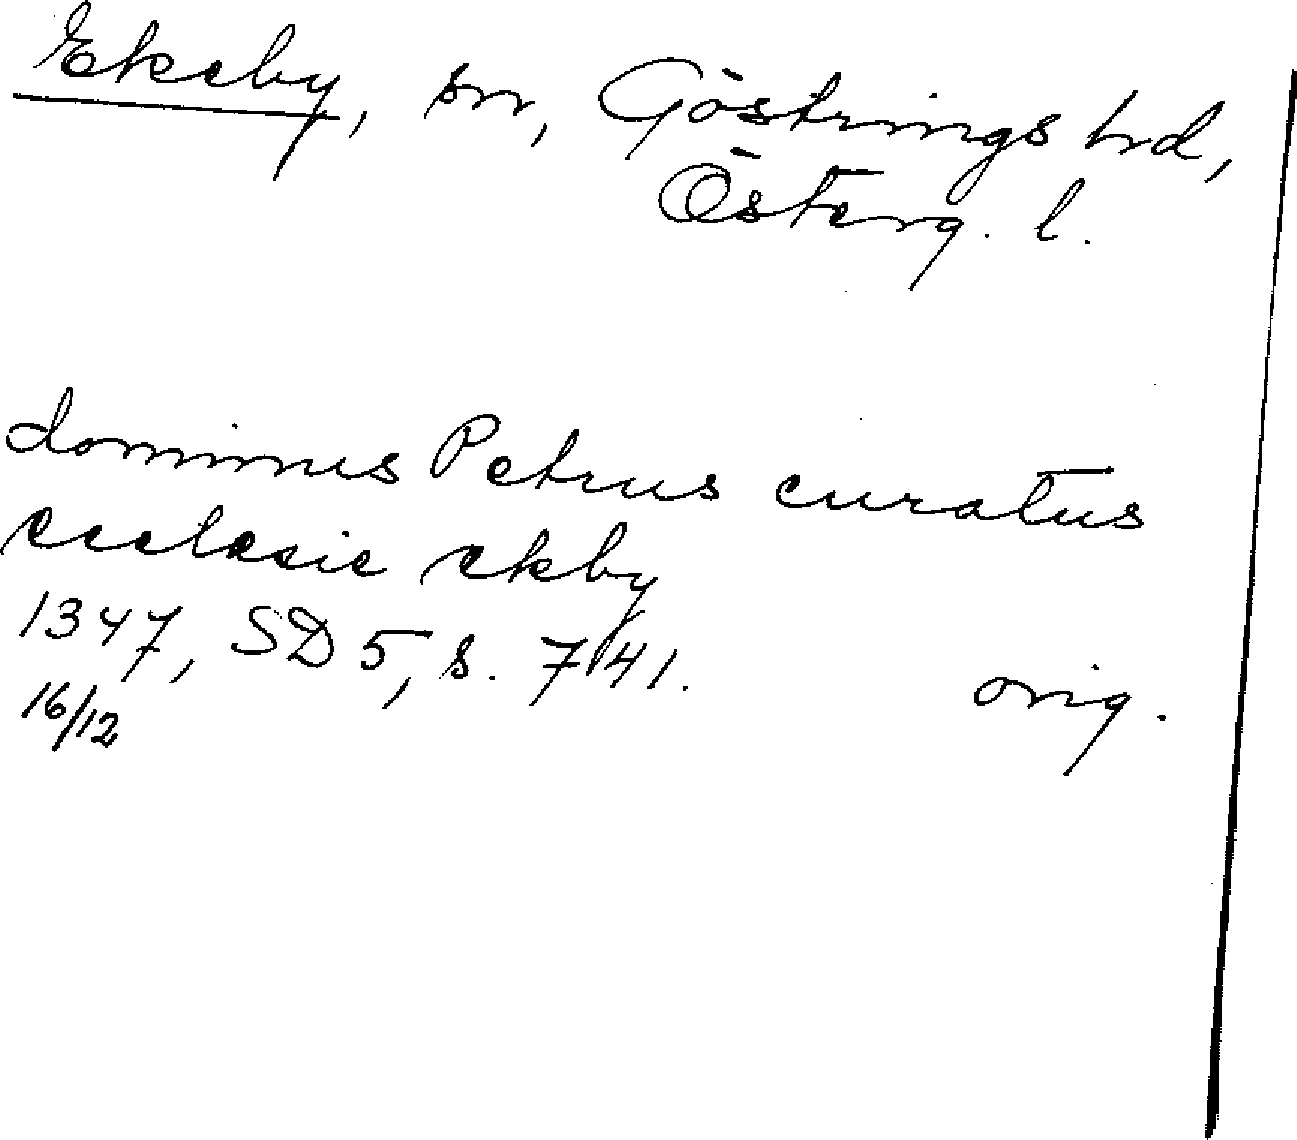 Ekeby, sn, Göstrings hrd,
Österg. l.
dominus Petrus curatus
ecclesie ekby
1347, SD 5, s. 741. orig.
16/12